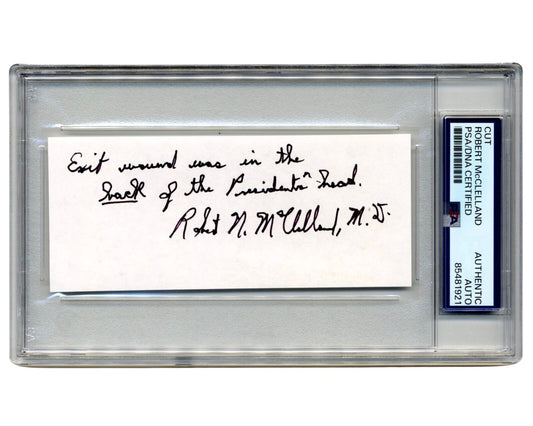 Exit wound was in the
back of the Presidents^ head.
Robert N. McClelland, M.D.
CUT
ROBERT McCLELLAND
PSA/DNA CERTIFIED
PSA
AUTHENTIC
AUTO
85481921